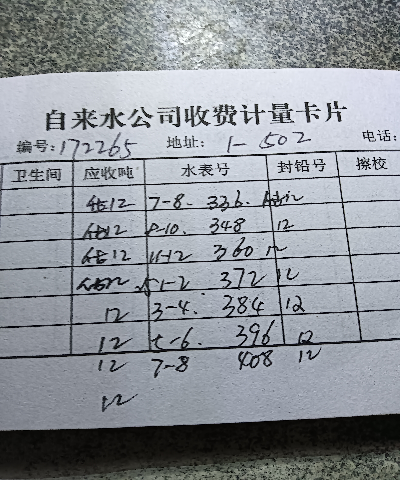 自来水公司收费计量卡片
编号:172265 地址: 1-502 电话:
卫生间 应收吨 水表号 封铅号 擦校
12 7-8. 336. 12
12 9-10. 348 12
12 11-12 360 12
12 1-2 372 12
12 3-4. 384 12
12 5-6. 396 12
12 7-8 408 12
12